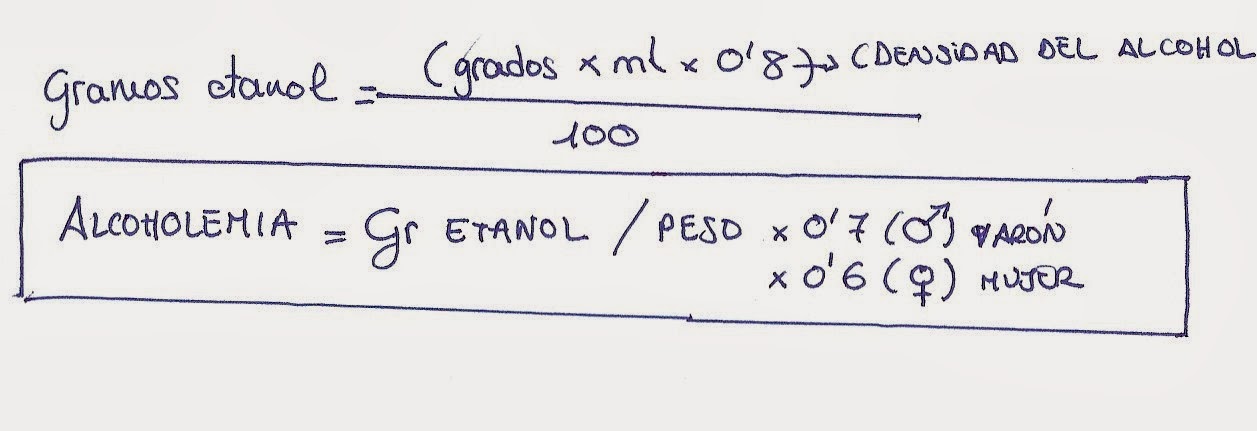 Gramos etanol = (grados x ml x 0'8) → (DENSIDAD DEL ALCOHOL
100
ALCOHOLEMIA = Gr ETANOL / PESO x 0'7 (♂) VARÓN
x 0'6 (♀) MUJER